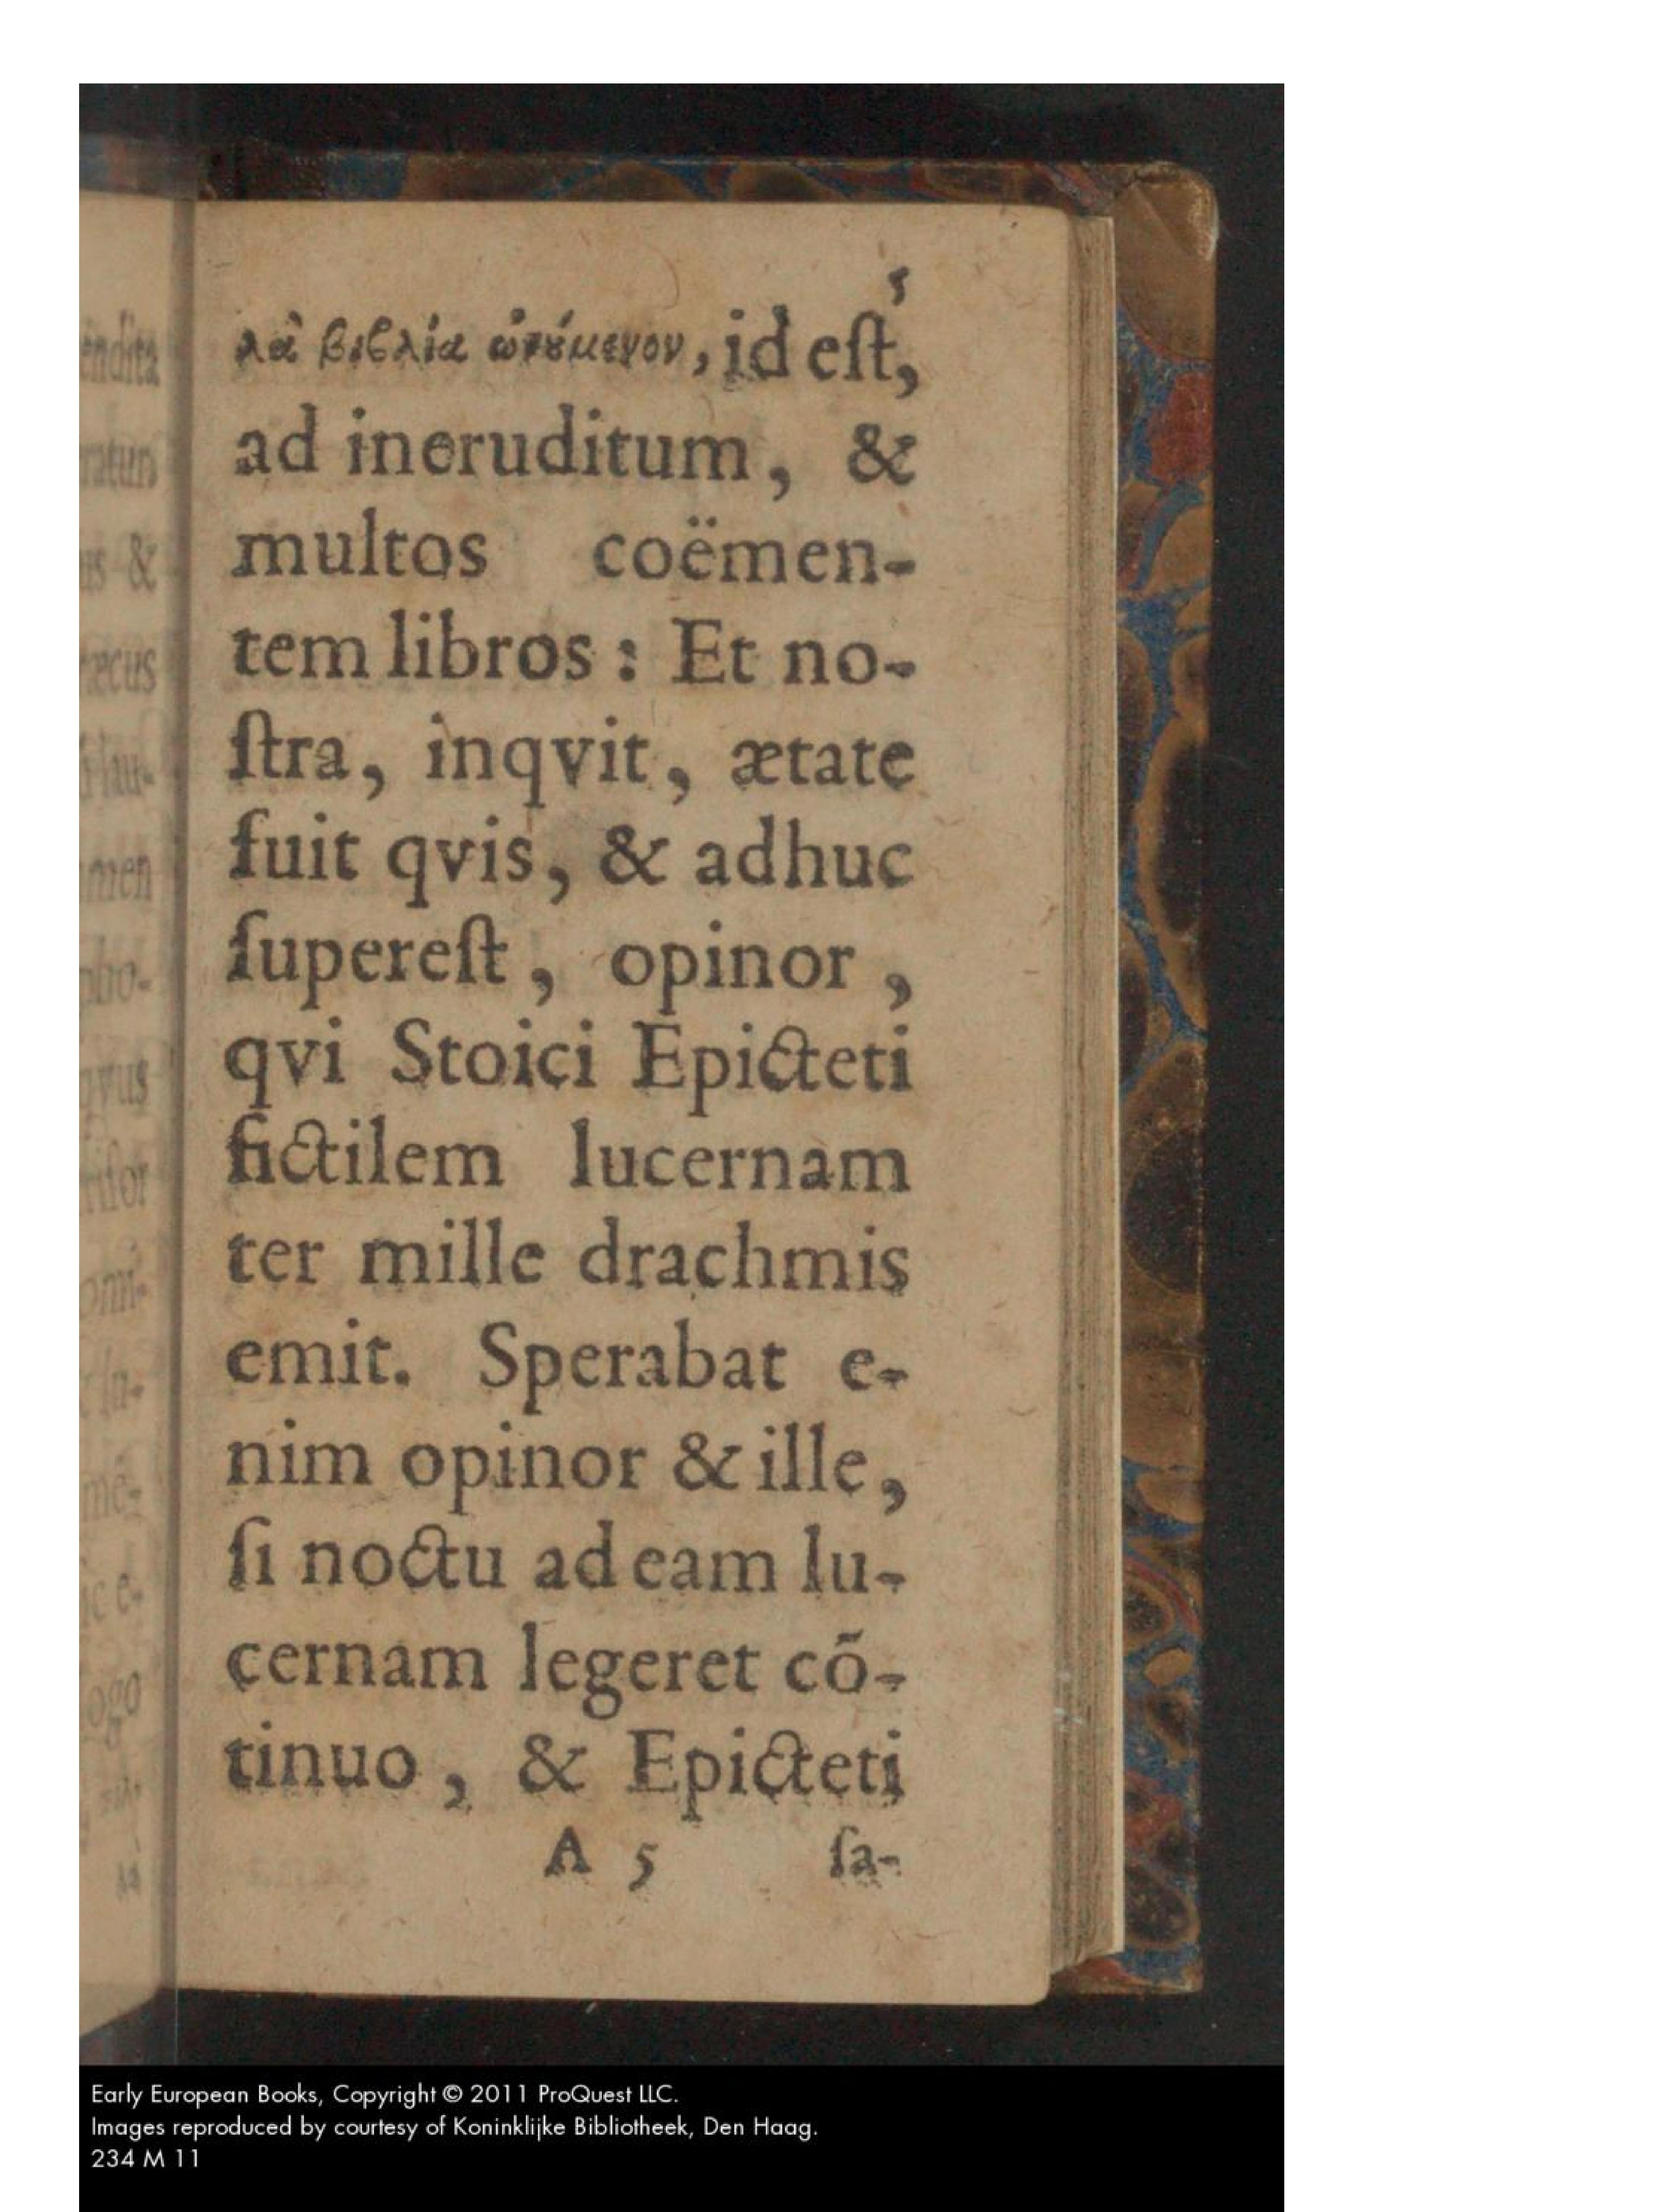 5
λὰ βιβλία ὠνούμενον, id eſt,
ad ineruditum, &
multos coëmen-
tem libros : Et no-
ſtra, inqvit, ætate
fuit qvis, & adhuc
ſupereſt, opinor,
qvi Stoici Epicteti
fictilem lucernam
ter mille drachmis
emit. Sperabat e-
nim opinor & ille,
ſi noctu ad eam lu-
cernam legeret cõ-
tinuo, & Epicteti
A 5 ſa-
Early European Books, Copyright © 2011 ProQuest LLC.
Images reproduced by courtesy of Koninklijke Bibliotheek, Den Haag.
234 M 11